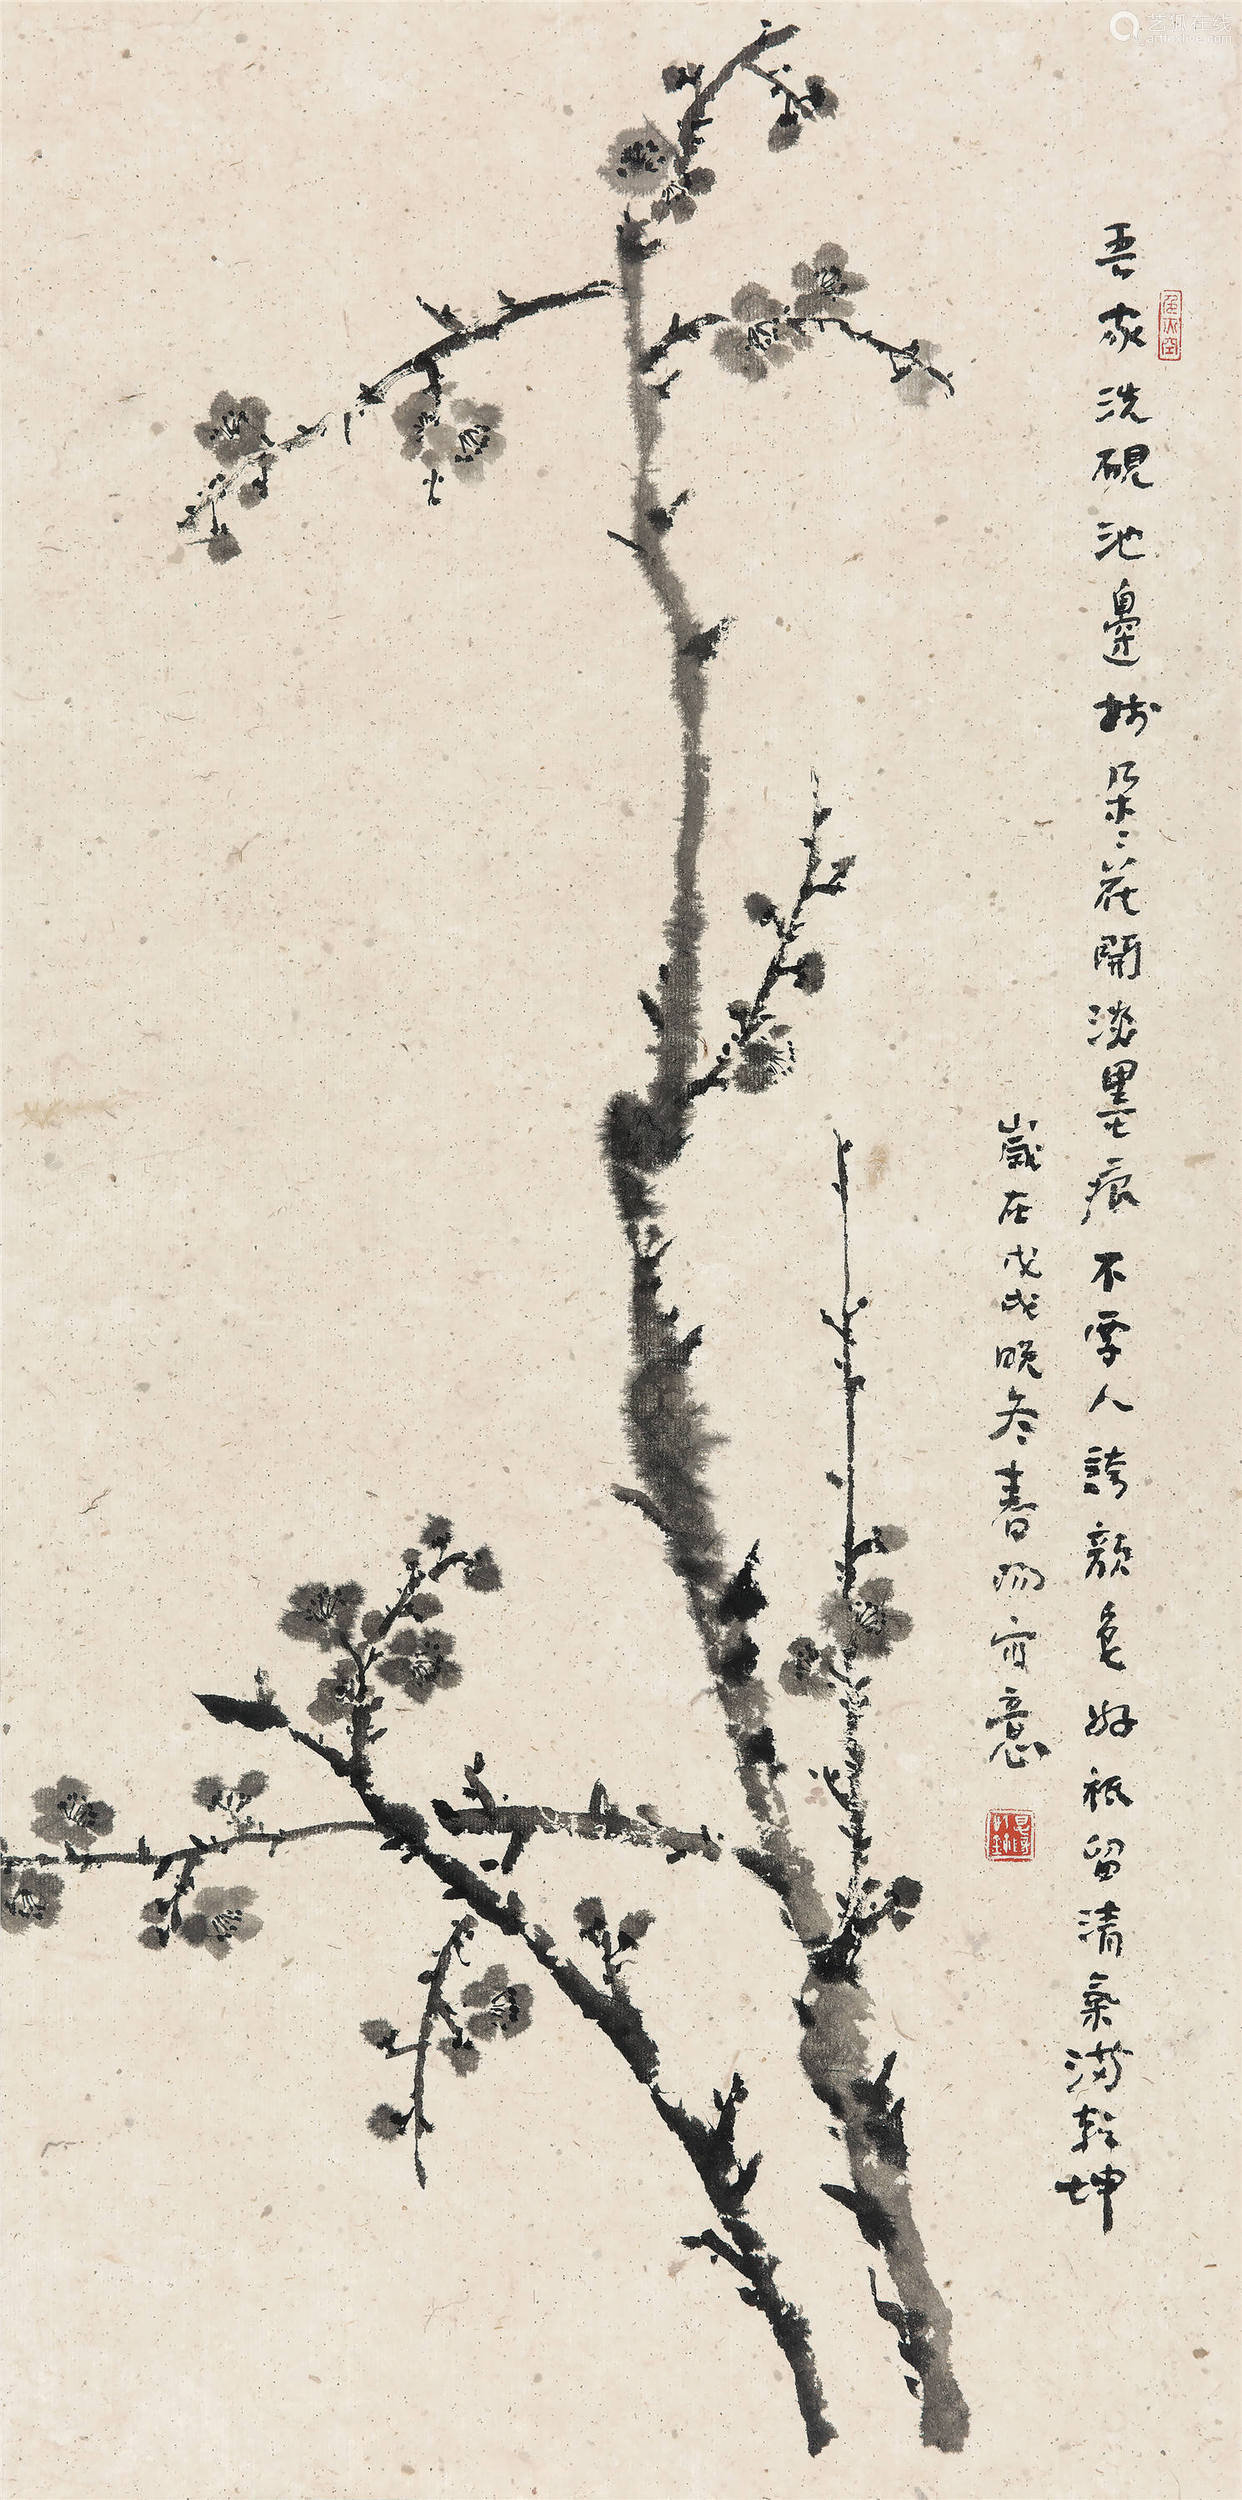 吾家洗硯池邊樹朵〻花開淡墨痕不要人誇顏色好祇留清氣滿乾坤
歲在戊戌晚冬春
意
艺狐在线
artfoxlive.com